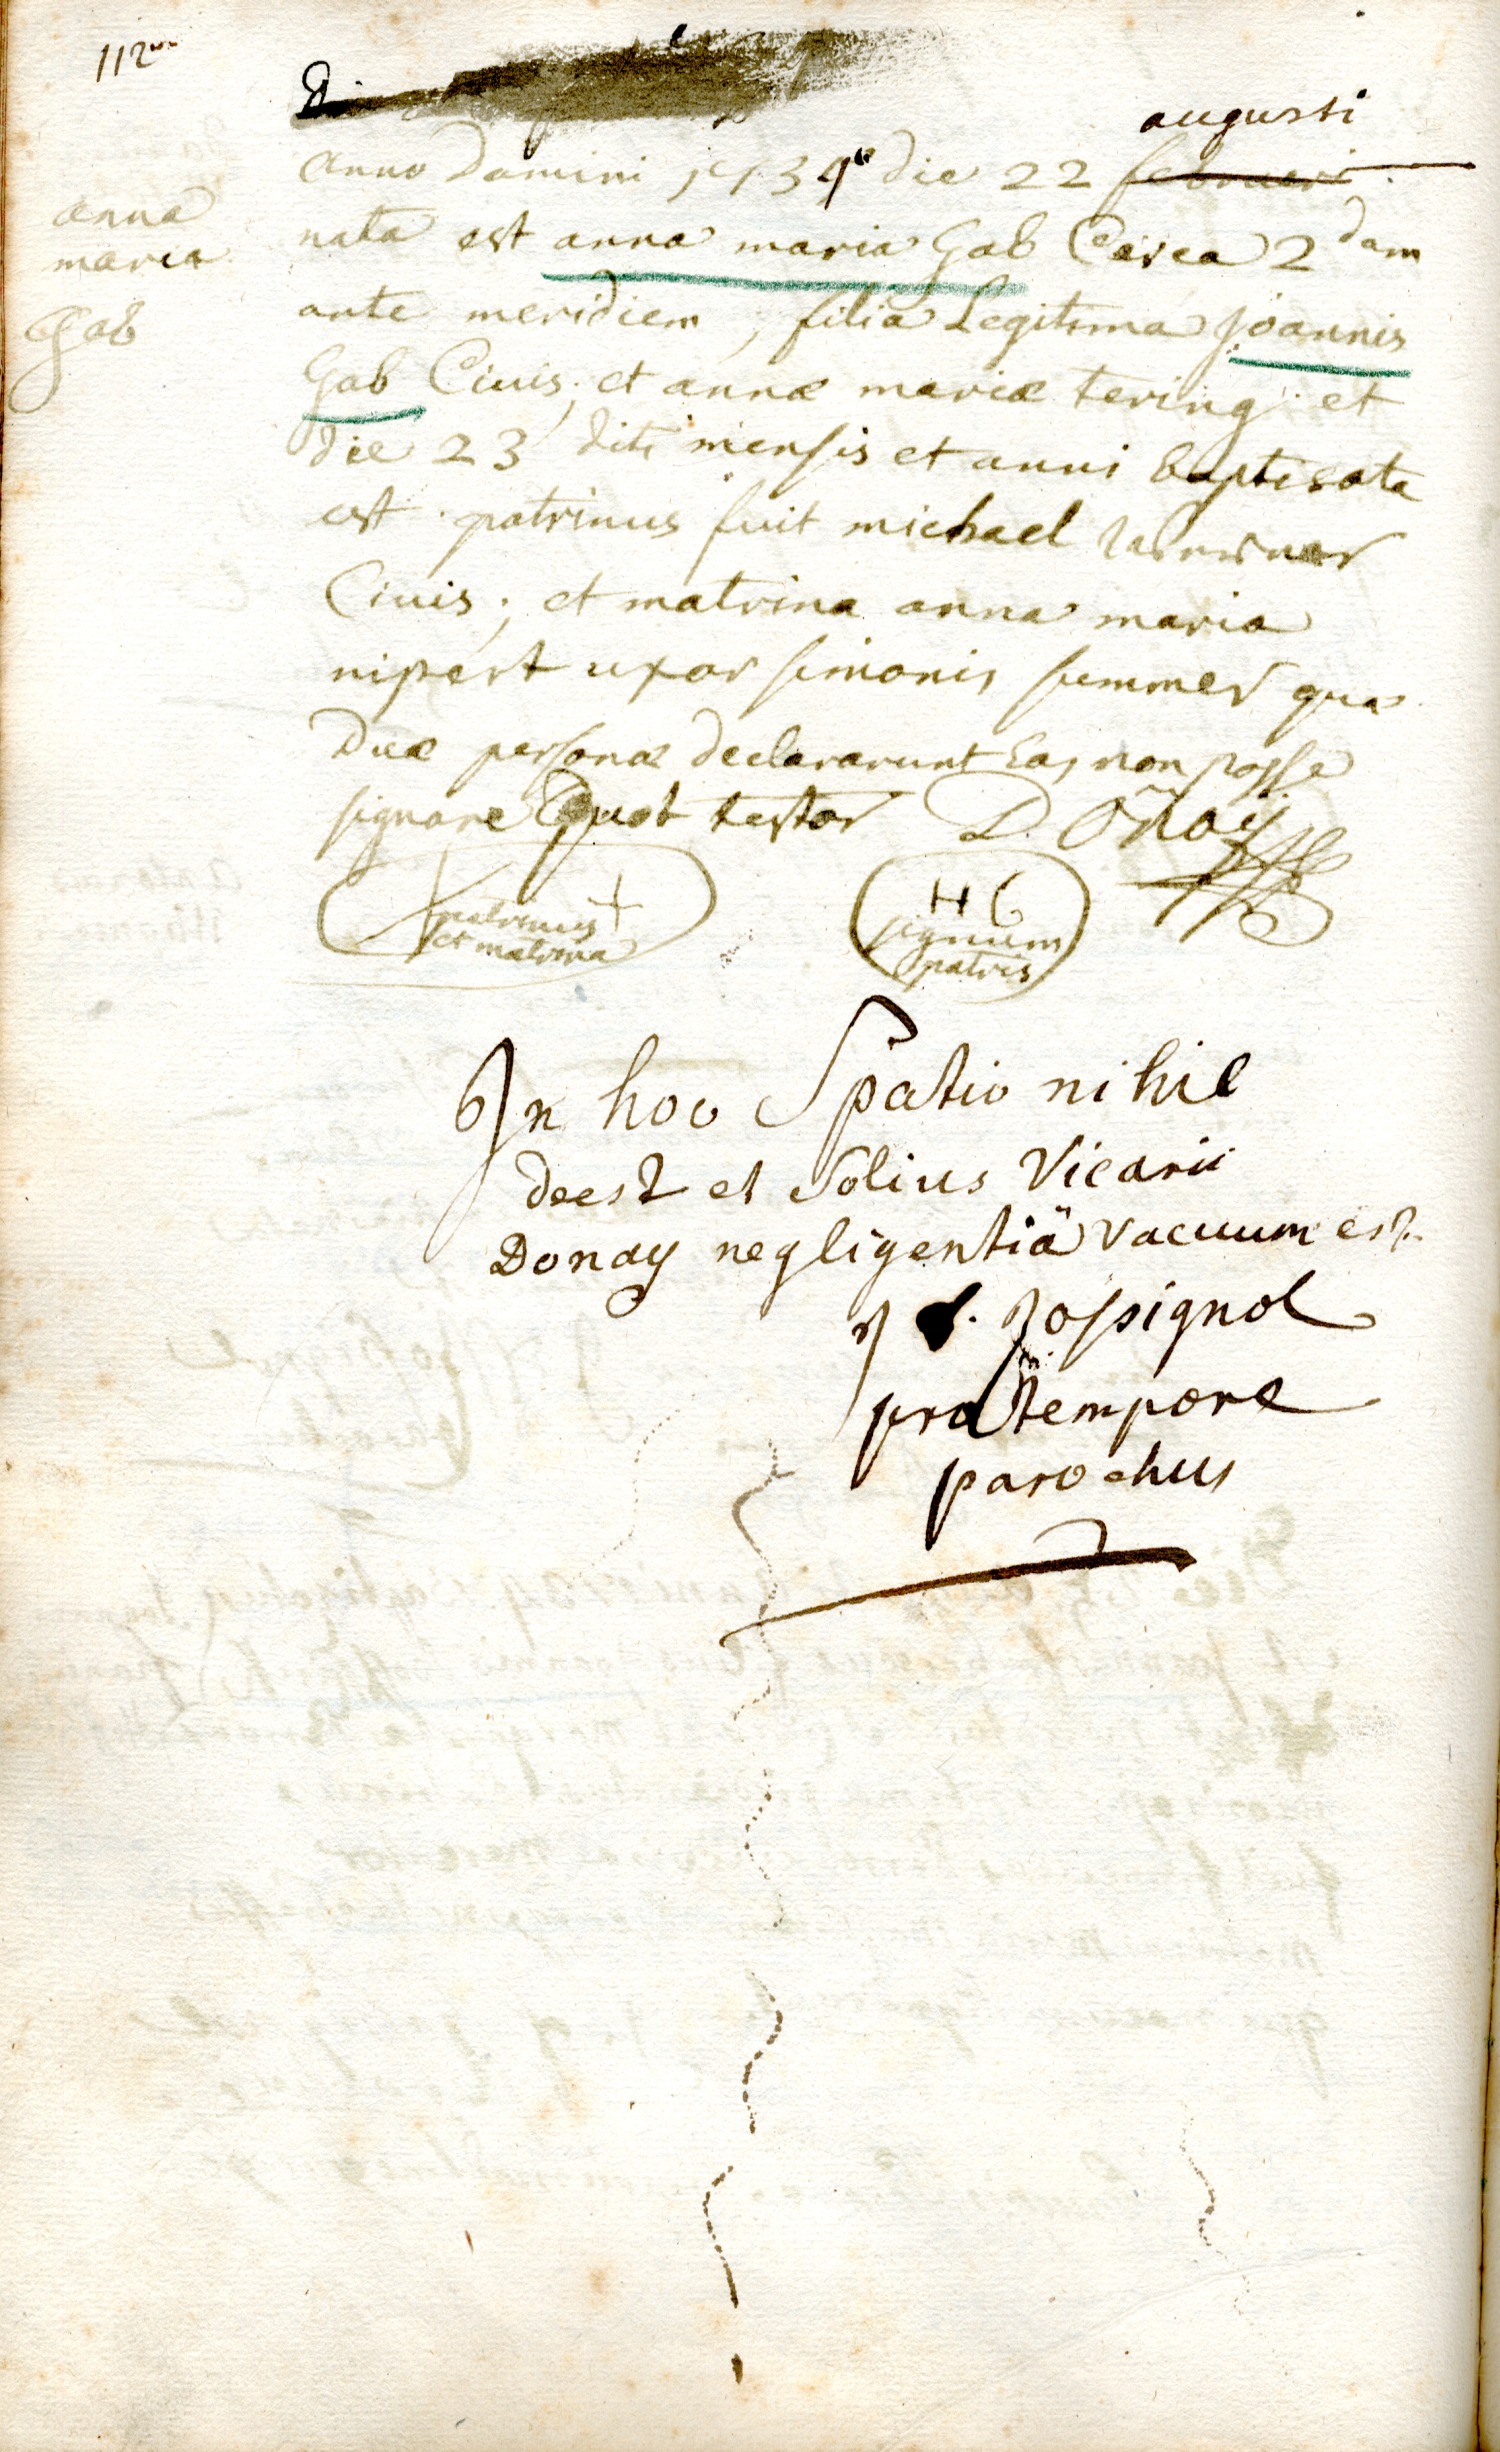 112
augusti
anno Domini 1734 die 22 februari
anna
maria
Gab
nata est anna maria Gab Circa 2dam
ante meridiem, filia Legitima joannis
Gab Civis; et annæ mariæ tering et
die 23 diti mensis et anni baptisata
est. patrinus fuit michael
Civis; et matrina anna maria
nipert uxor simonis summer quæ
Duæ personæ declararunt Eas non posse
signare quot testor D. Onay
patrinus
et matrina
H G
signum
patris
In hoc Spatio nihil
deest et Solius Vicarii
Donay negligentiä vacuum est.
Rossignol
pro tempore
parochus